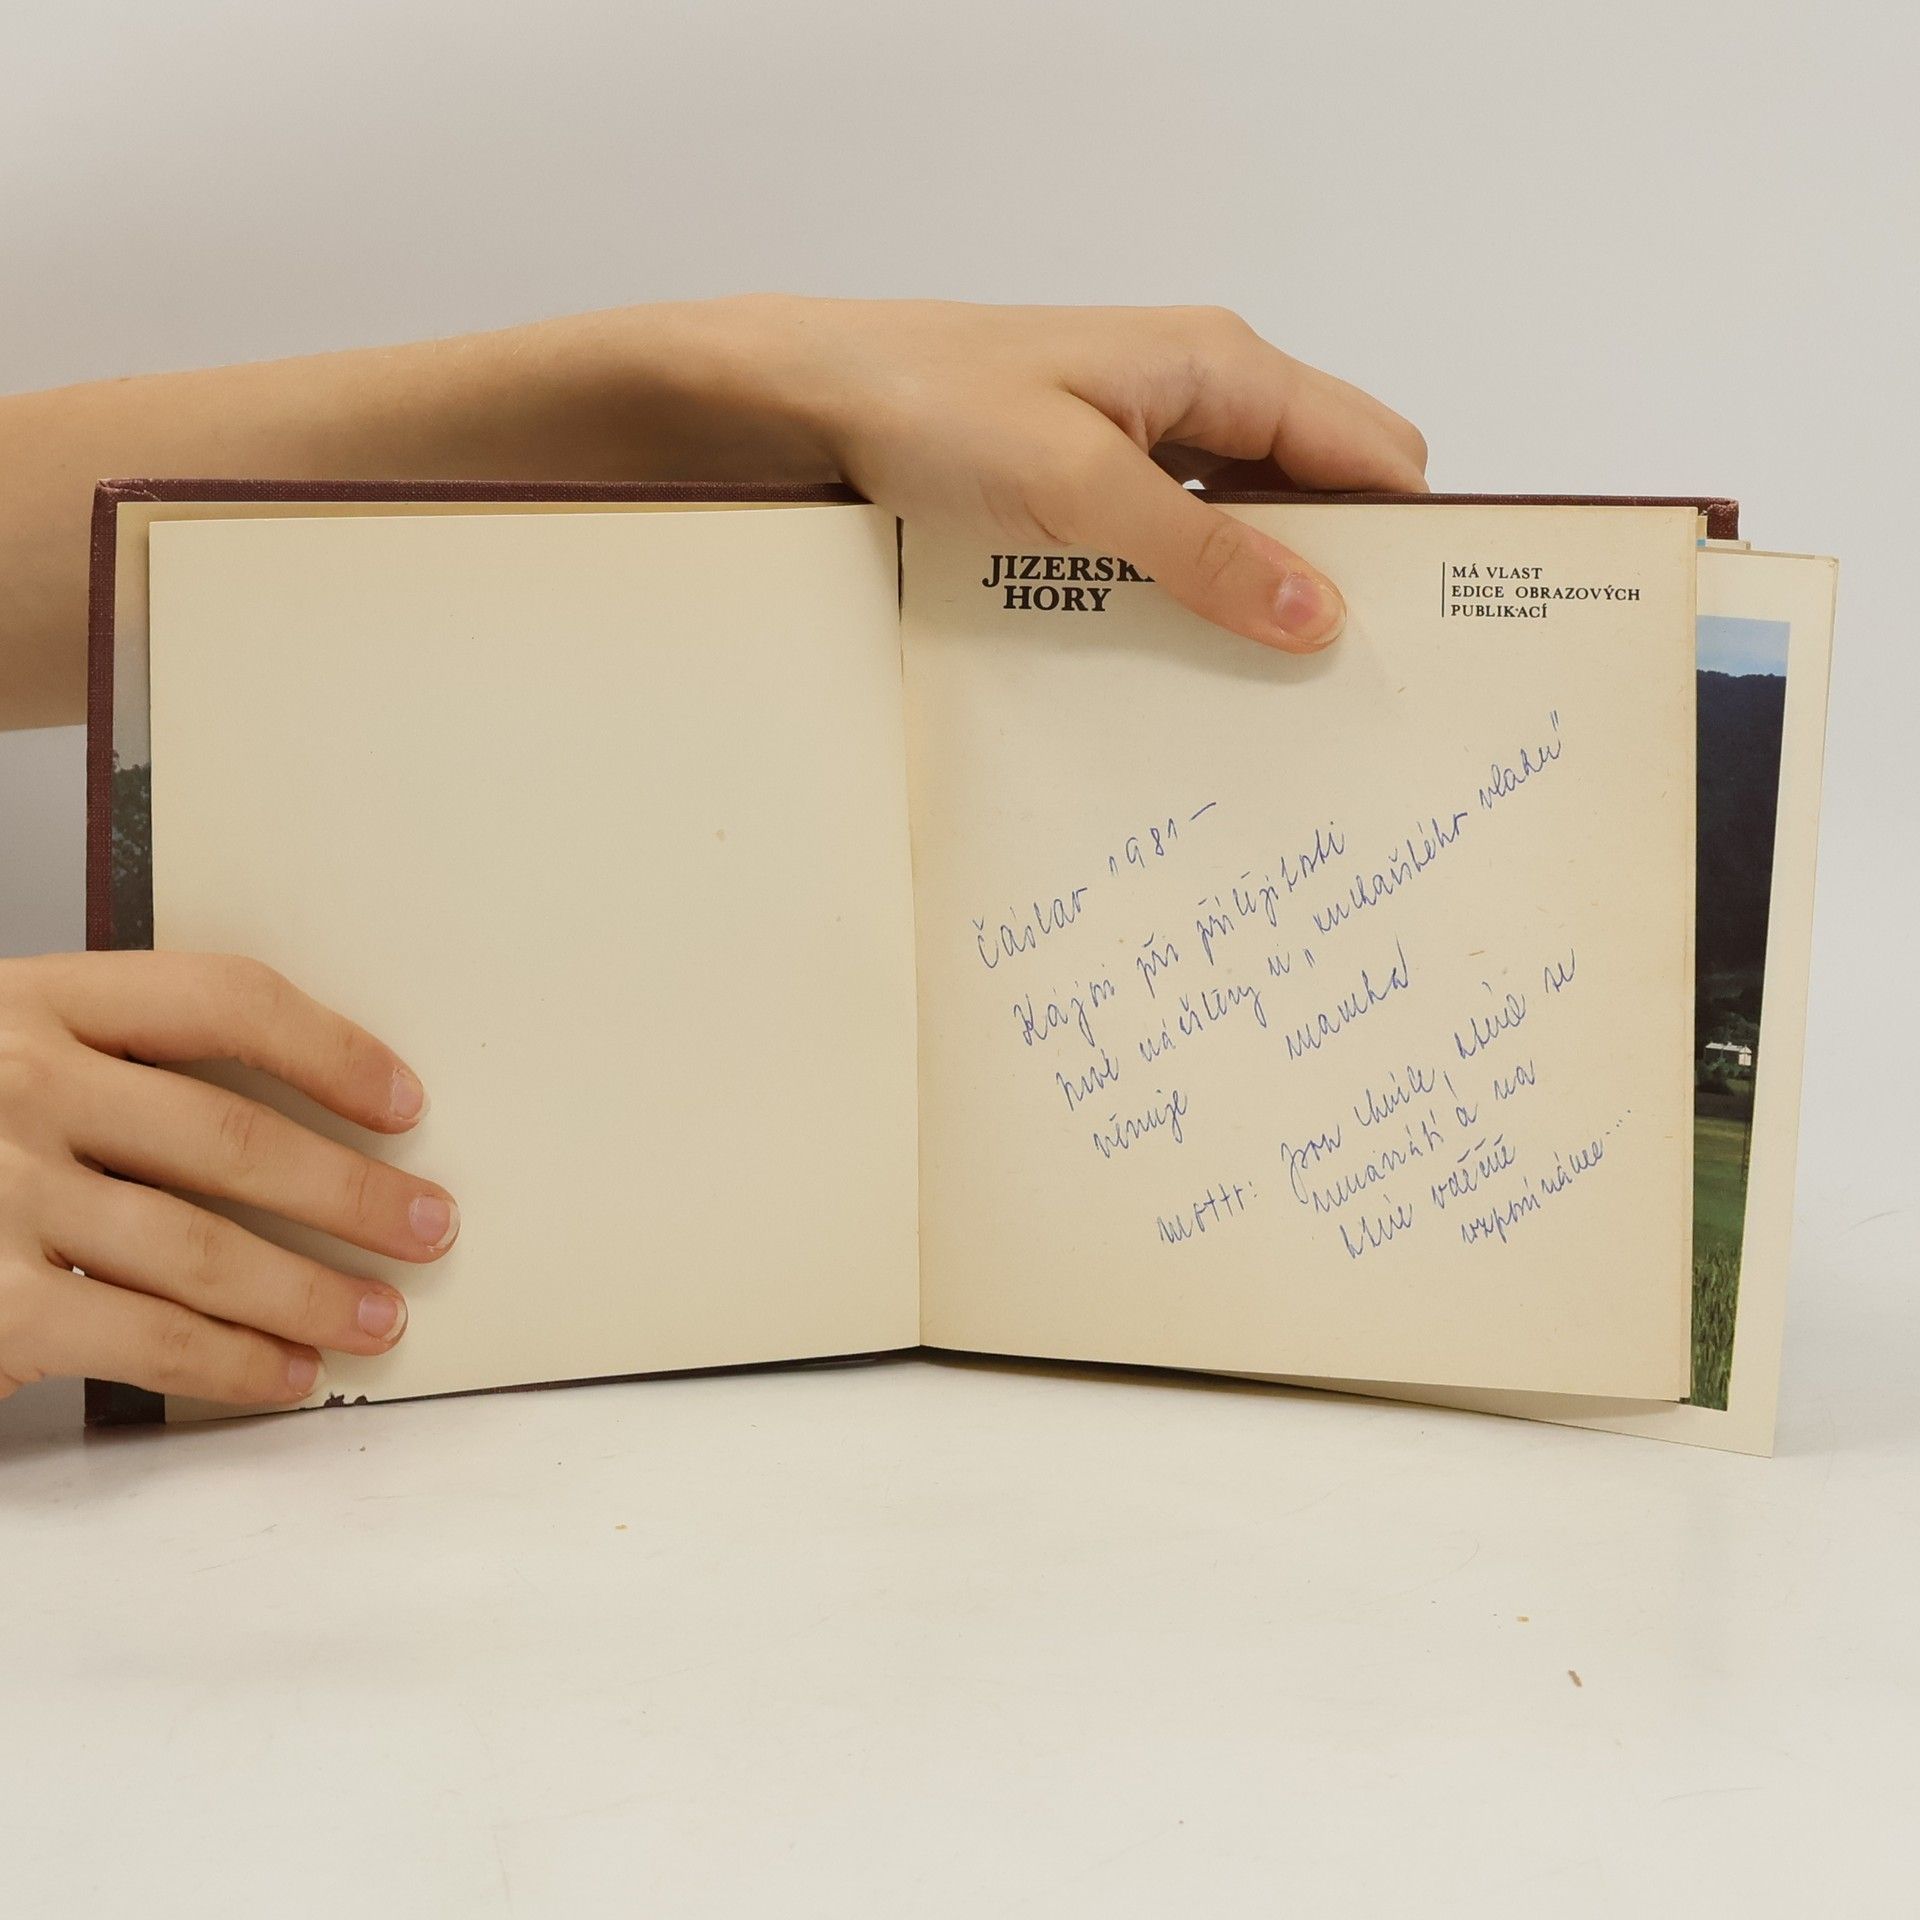 JIZERSK
HORY
MÁ VLAST
EDICE OBRAZOVÝCH
PUBLIKACÍ
Čáslav 1981 —
Kájni při příležitosti
prvé návštěvy u „kuchařského vlaku"
věnuje mamka
motto: Jsou chvíle, které se
nenavrátí a na
které vděčně
vzpomínáme....